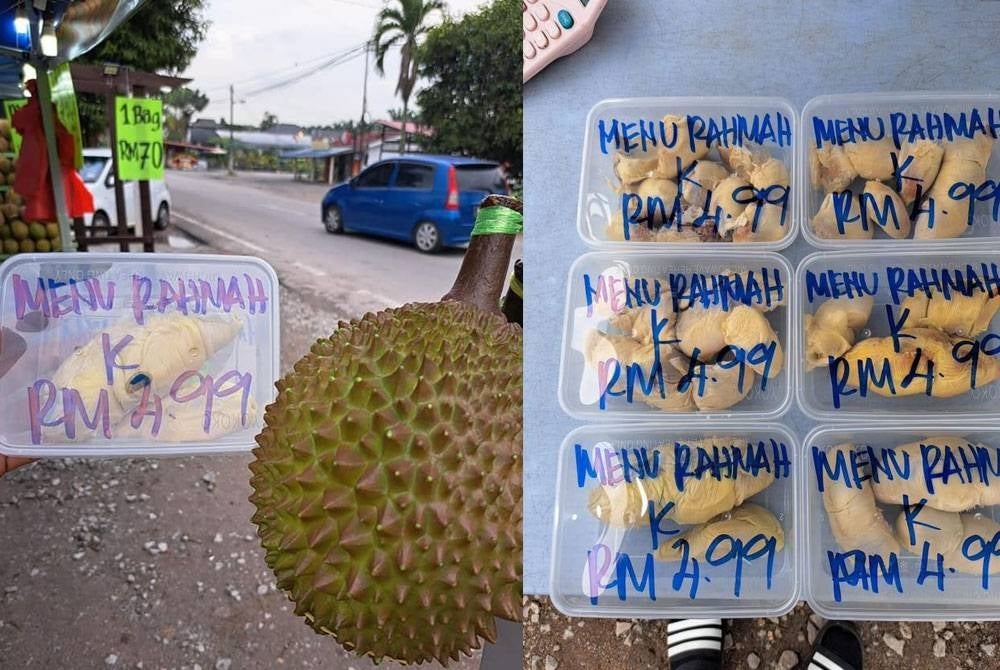 1 Bag
RM70
MENU RAHMAH
K
RM 2.99
MENU RAHMAH
K
RM 4.99
MENU RAHMAH
K
RM 4.99
MENU RAHMAH
K
RM 4.99
MENU RAHMAH
K
RM 4.99
MENU RAHMAH
K
RM 2.99
MENU RAHMAH
K
RM 4.99